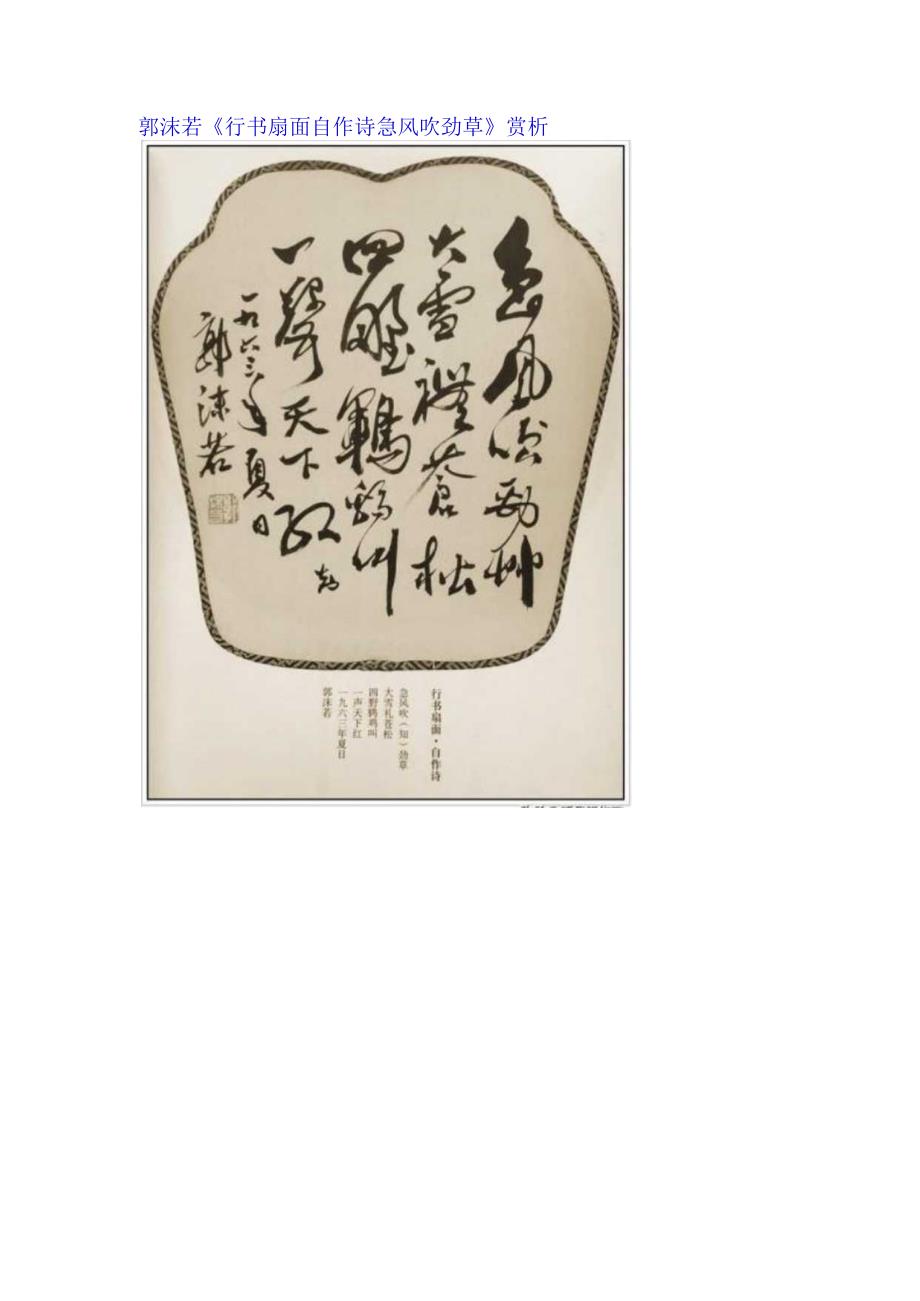 郭沫若《行书扇面自作诗急风吹劲草》赏析
急風吹勁草
大雪禮蒼松
四野鶤鷄叫
一聲天下紅 知
一九六三年夏日
郭沫若
行书扇面·自作诗
急风吹(知)劲草
大雪礼苍松
四野鸡叫
一声天下红
一九六三年夏日
郭沫若